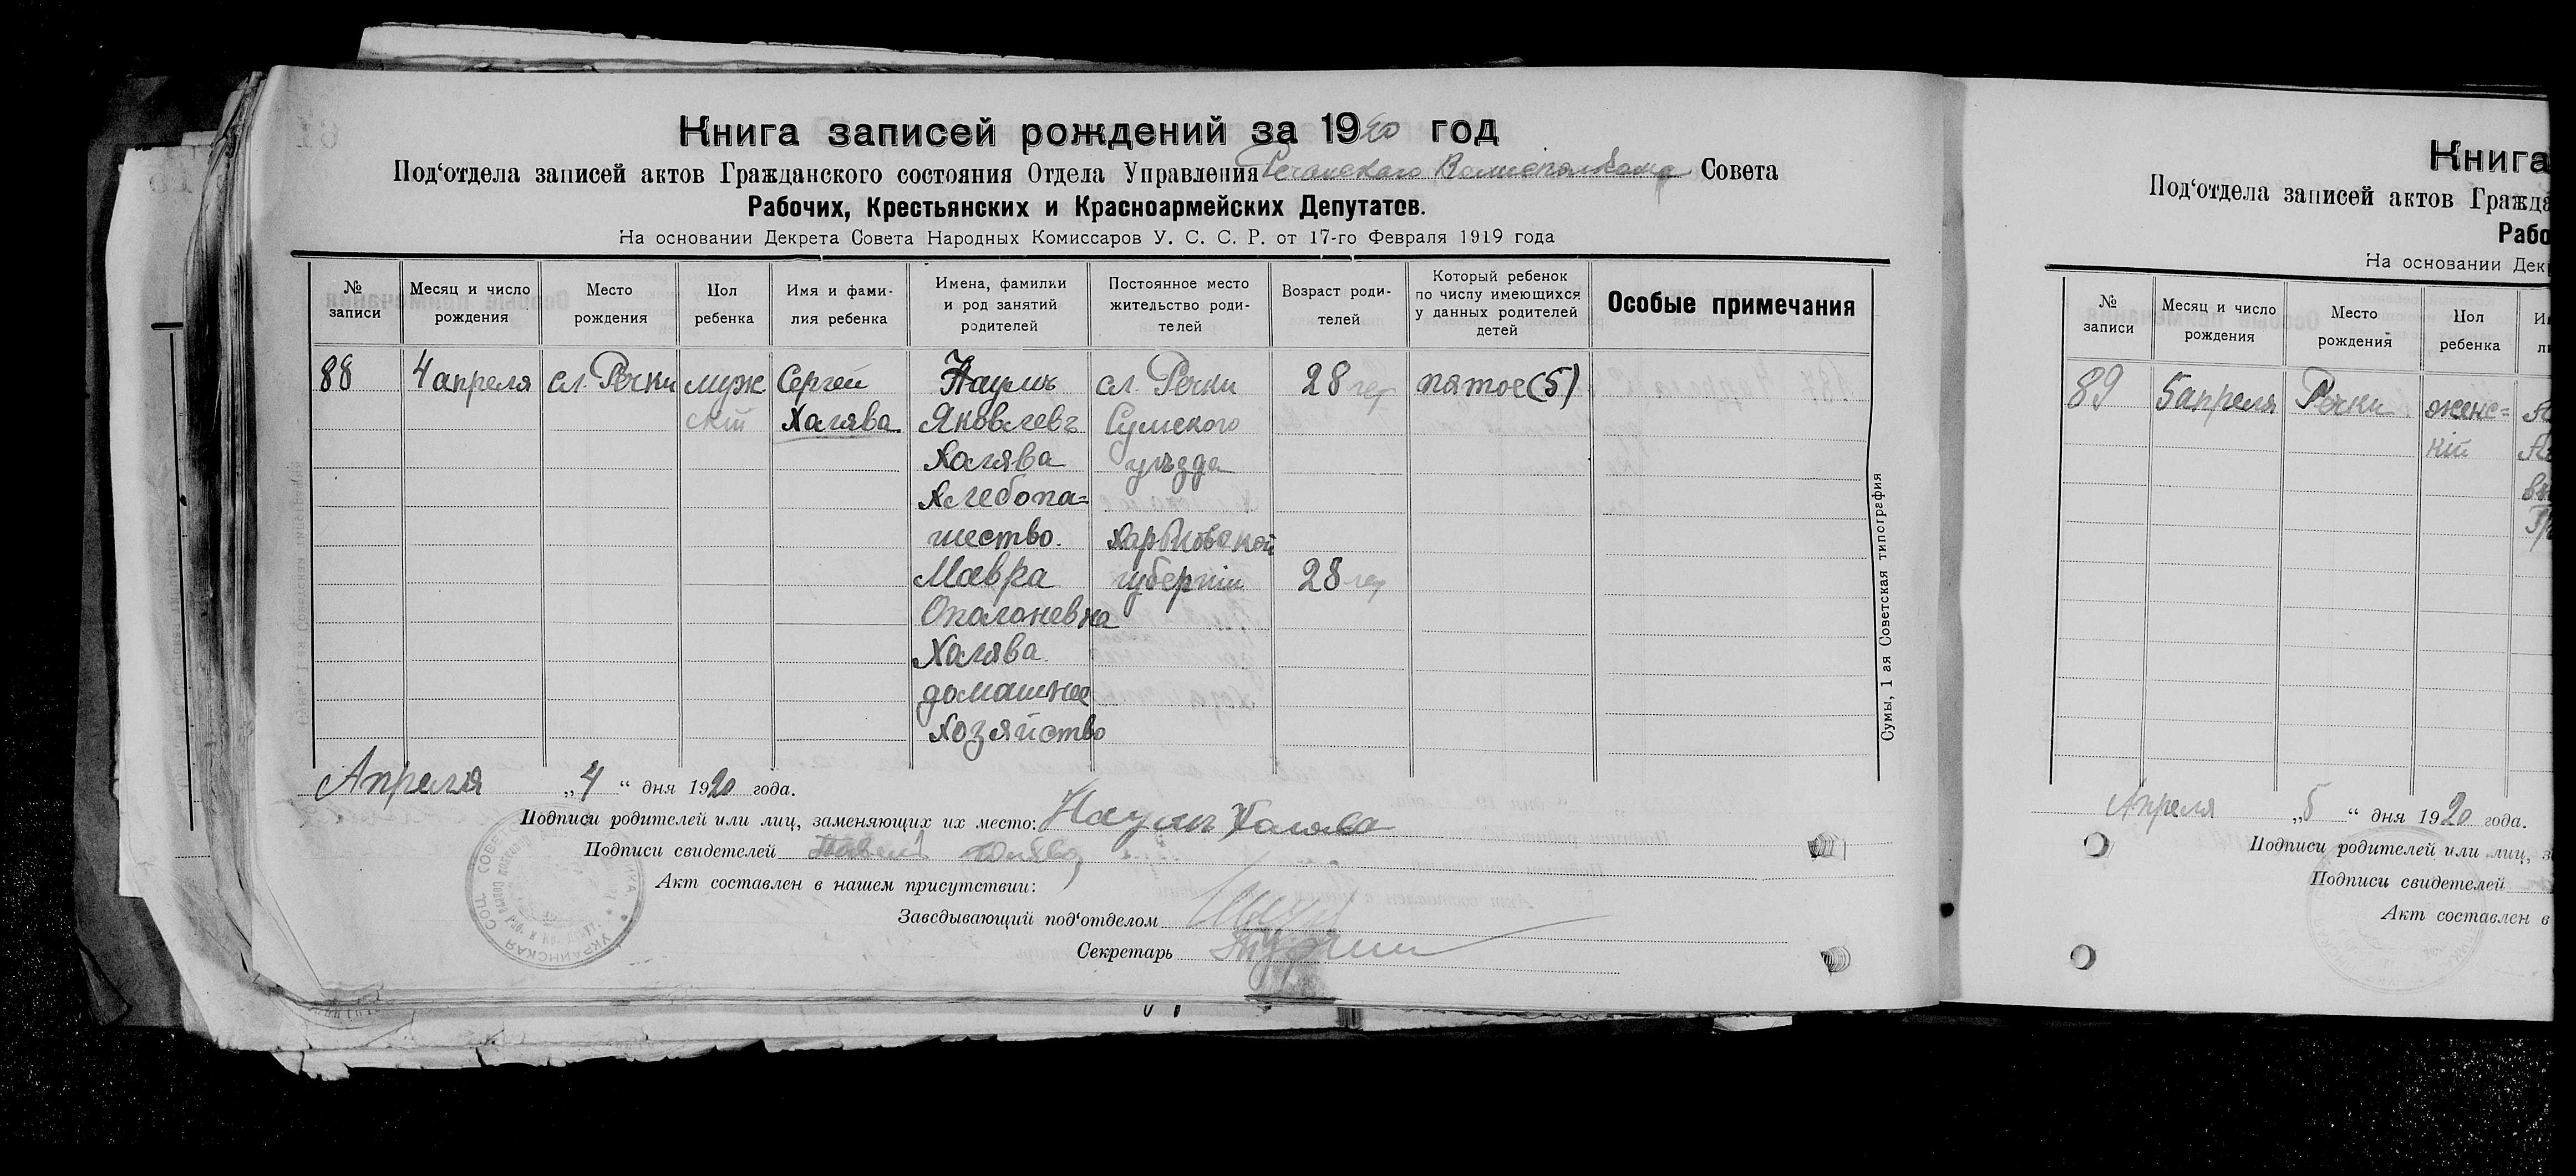 Книга записей рождений за 1920 год
Под‘отдела записей актов Гражданского состояния Отдела Управления Речанского Волисполкома Совета
Рабочих, Крестьянских и Красноармейских Депутатов.
На основании Декрета Совета Народных Комиссаров У. С. С. Р. от 17-го Февраля 1919 года
№ записи
Месяц и число рождения
Место рождения
Пол ребенка
Имя и фами-
лия ребенка
Имена, фамилии
и род занятий
родителей
Постоянное место
жительство роди-
телей
Возраст роди-
телей
Который ребенок
по числу имеющихся
у данных родителей
детей
Особые примечания
88
4 апреля
сл. Речки
муж
скій
Сергей
Халява.
Наумъ
Яковлевъ
Халява
Хлебопа=
шество.
Мавра
Халява.
домашнее
хозяйство
сл. Речки
Сумского
уъзда
Харьковской
губерніи
28 лет
28 лет
пятое (5)
Апреля „4“ дня 1920 года.
Подписи родителей или лиц, заменяющих их место: Наумъ Халява
Подписи свидетелей
Акт составлен в нашем присутствии:
Заведывающий под‘отделом
Секретарь
Сумы, 1 ая Советская типография
Книга
Под‘отдела записей актов Гражда
Рабо
На основании Дек
№
записи
Месяц и число
рождения
Место
рождения
Пол
ребенка
89
5 апреля
Речки
женс=
кій
Апреля „5“ дня 1920 года.
Подписи родителей или лиц, з
Подписи свидетелей
Акт составлен в